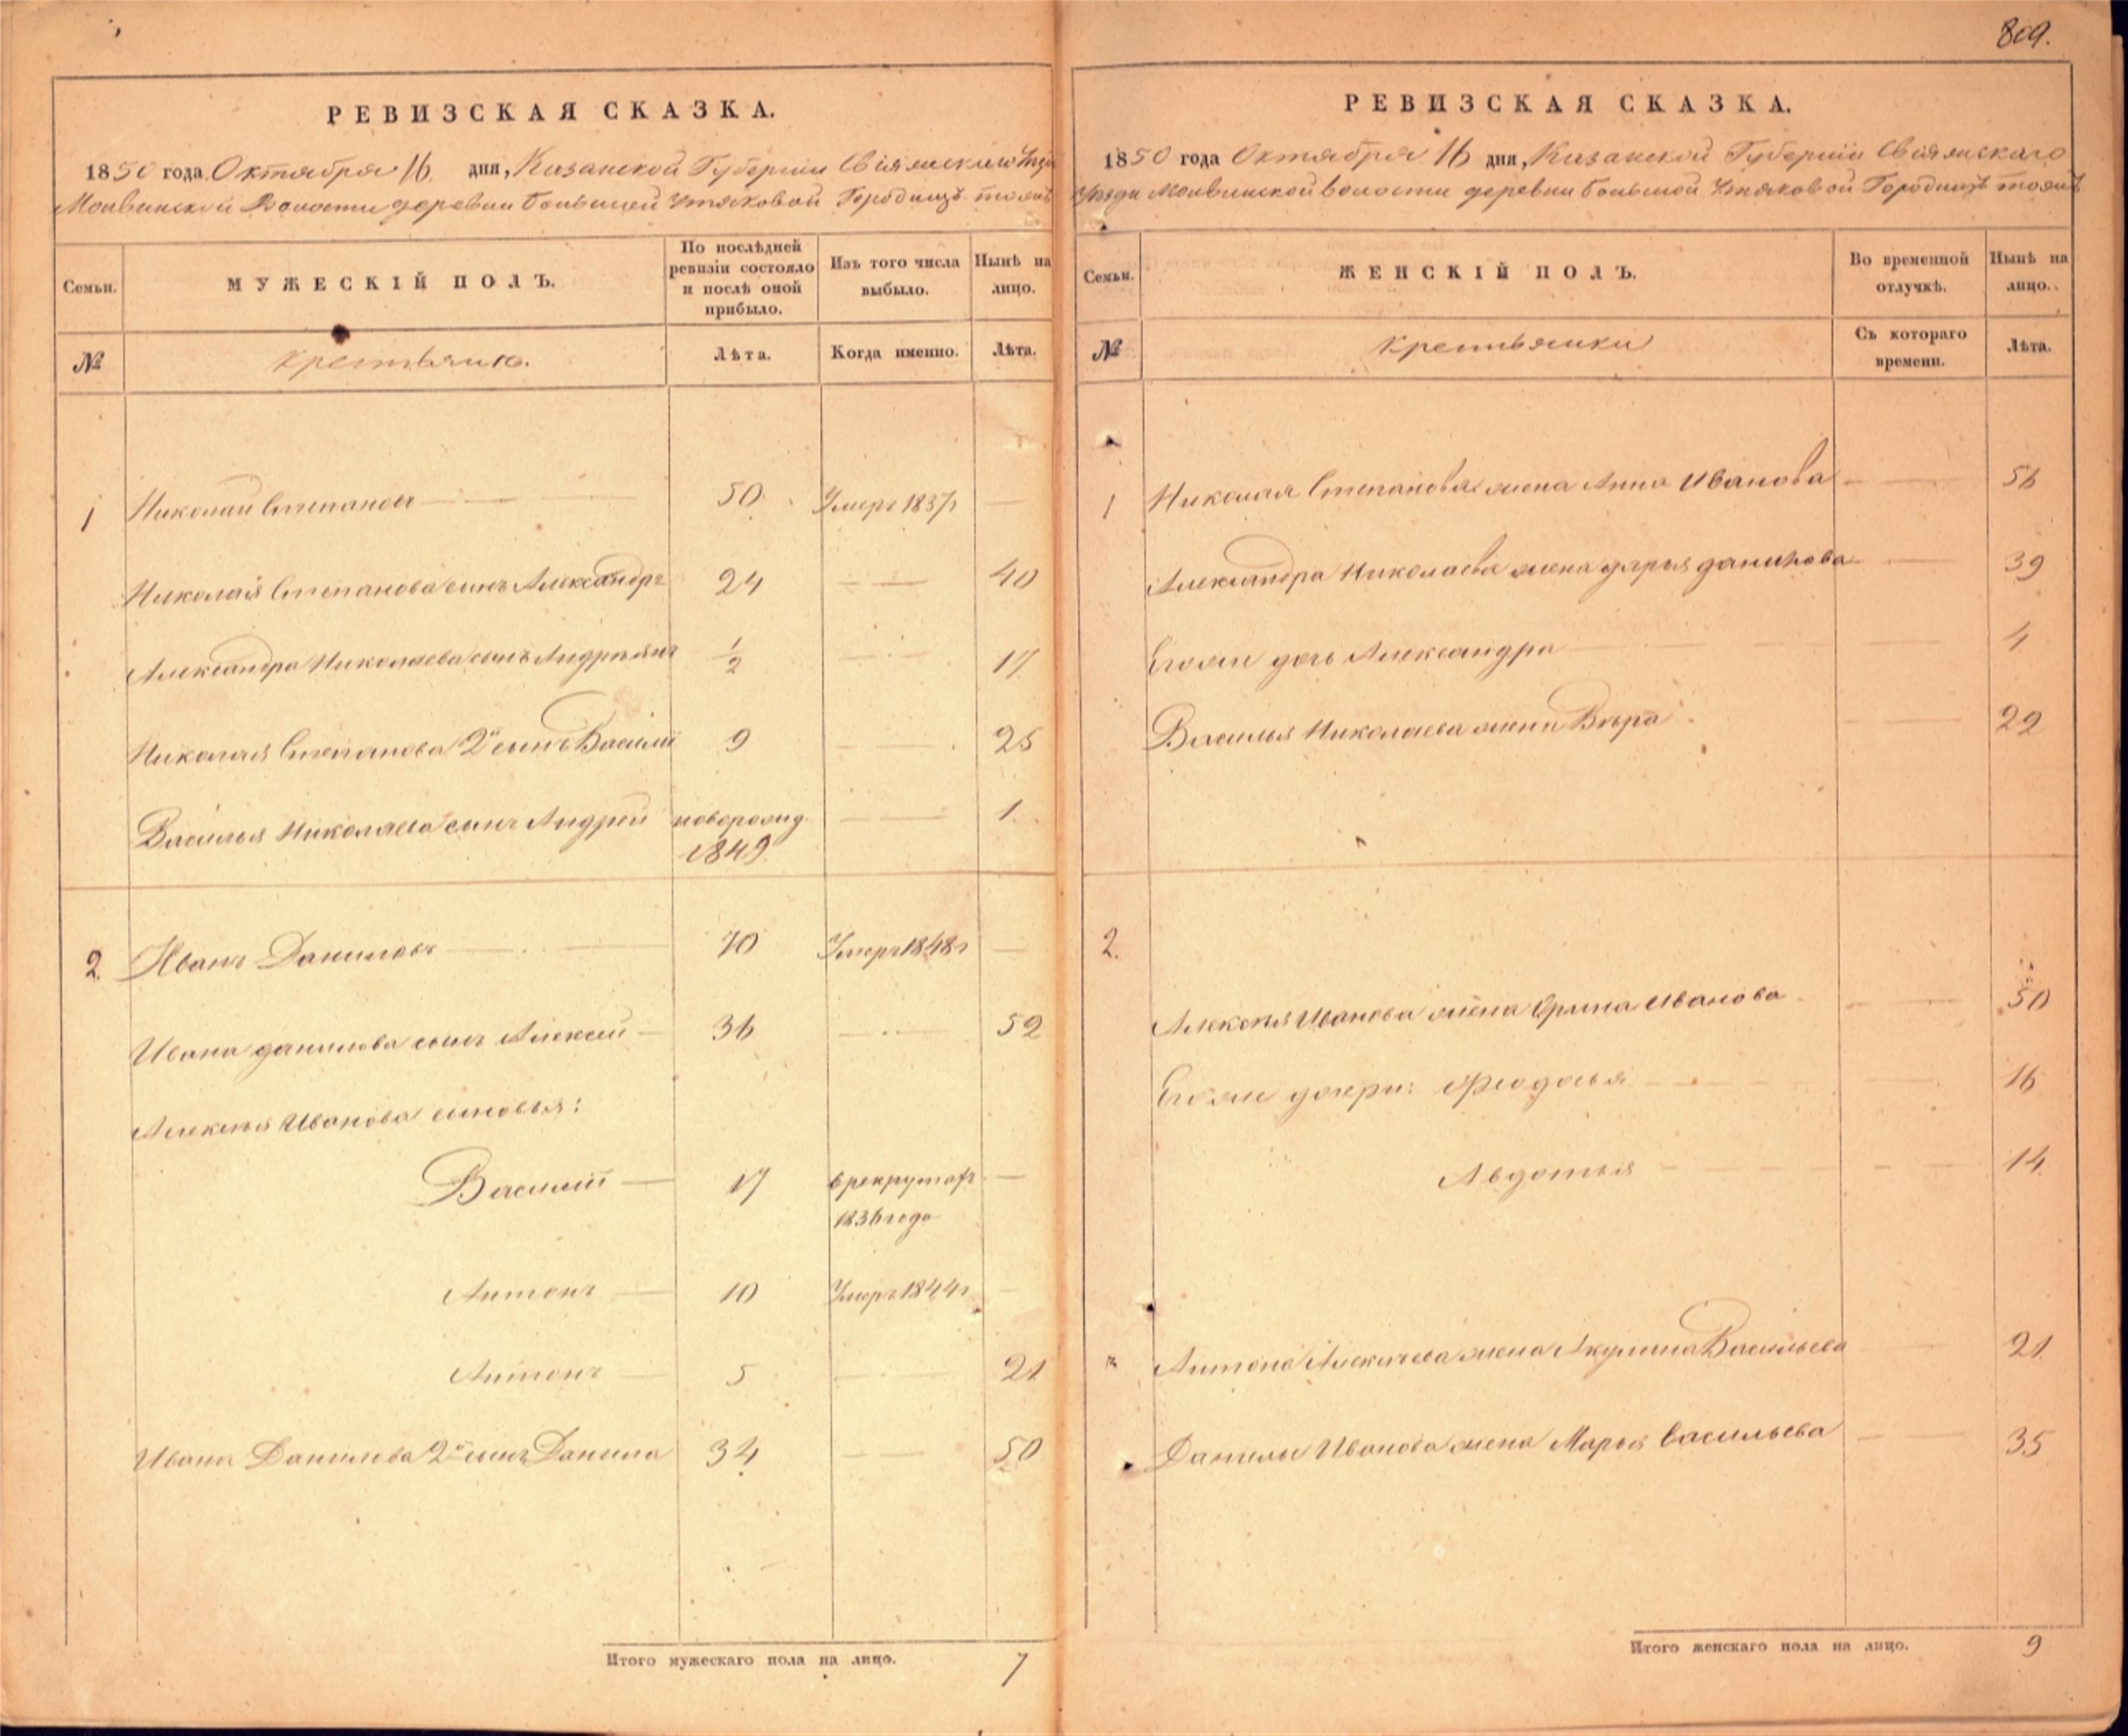 809.
РЕВИЗСКАЯ СКАЗКА.
1850 года Октября 16 дня, Казанской Губернии Свіяжскаго
волости деревни Большой Утяковой Городище тожъ
Семьи.
МУЖЕСКІЙ ПОЛЪ.
По послѣдней ревизіи состояло и послѣ оной прибыло.
Изъ того числа выбыло.
Нынѣ на лицо.
№
Лѣта.
Когда именно.
Лѣта.
1 Николай Степановъ 50 Умеръ 1837г
Николая Степанова сынъ Александръ 24 40
Александра Николаева сынъ Андреянъ 1/2 17
Николая Степанова 2й сынъ Василій 9 25
Василья Николаева сынъ Андрей новорожд. 1
1849
2 Иванъ Даниловъ 70 Умеръ 1848г
Ивана Данилова сынъ Алексей 36 52
Алексѣя Иванова сыновья:
Василій 17 в рекрутах
1836 года
Антонъ 10 Умеръ 1844г
Антонъ 5 21
Ивана Данилова 2й сынъ Данила 34 50
Итого мужескаго пола на лицо. 7
РЕВИЗСКАЯ СКАЗКА.
1850 года Октября 16 дня, Казанской Губернии Свіяжскаго
уѣзда волости деревни Большой Утяковой Городище тожъ
Семьи.
ЖЕНСКІЙ ПОЛЪ.
Во временной отлучкѣ.
Нынѣ на лицо.
№
крестьянки
Съ котораго времени.
Лѣта.
1 Николая Степанова жена Анна Иванова 56
Александра Николаева жена Дарья Данилова 39
Его же дочь Александра 4
Василья Николаева жена Вѣра 22
2.
Алексѣя Иванова жена Ирина Иванова 50
Его же дочери: Феодосья 16
Авдотья 14
Антона Алексѣева жена Акулина Васильева 21
Данилы Иванова жена Марья Васильева 35
Итого женскаго пола на лицо. 9